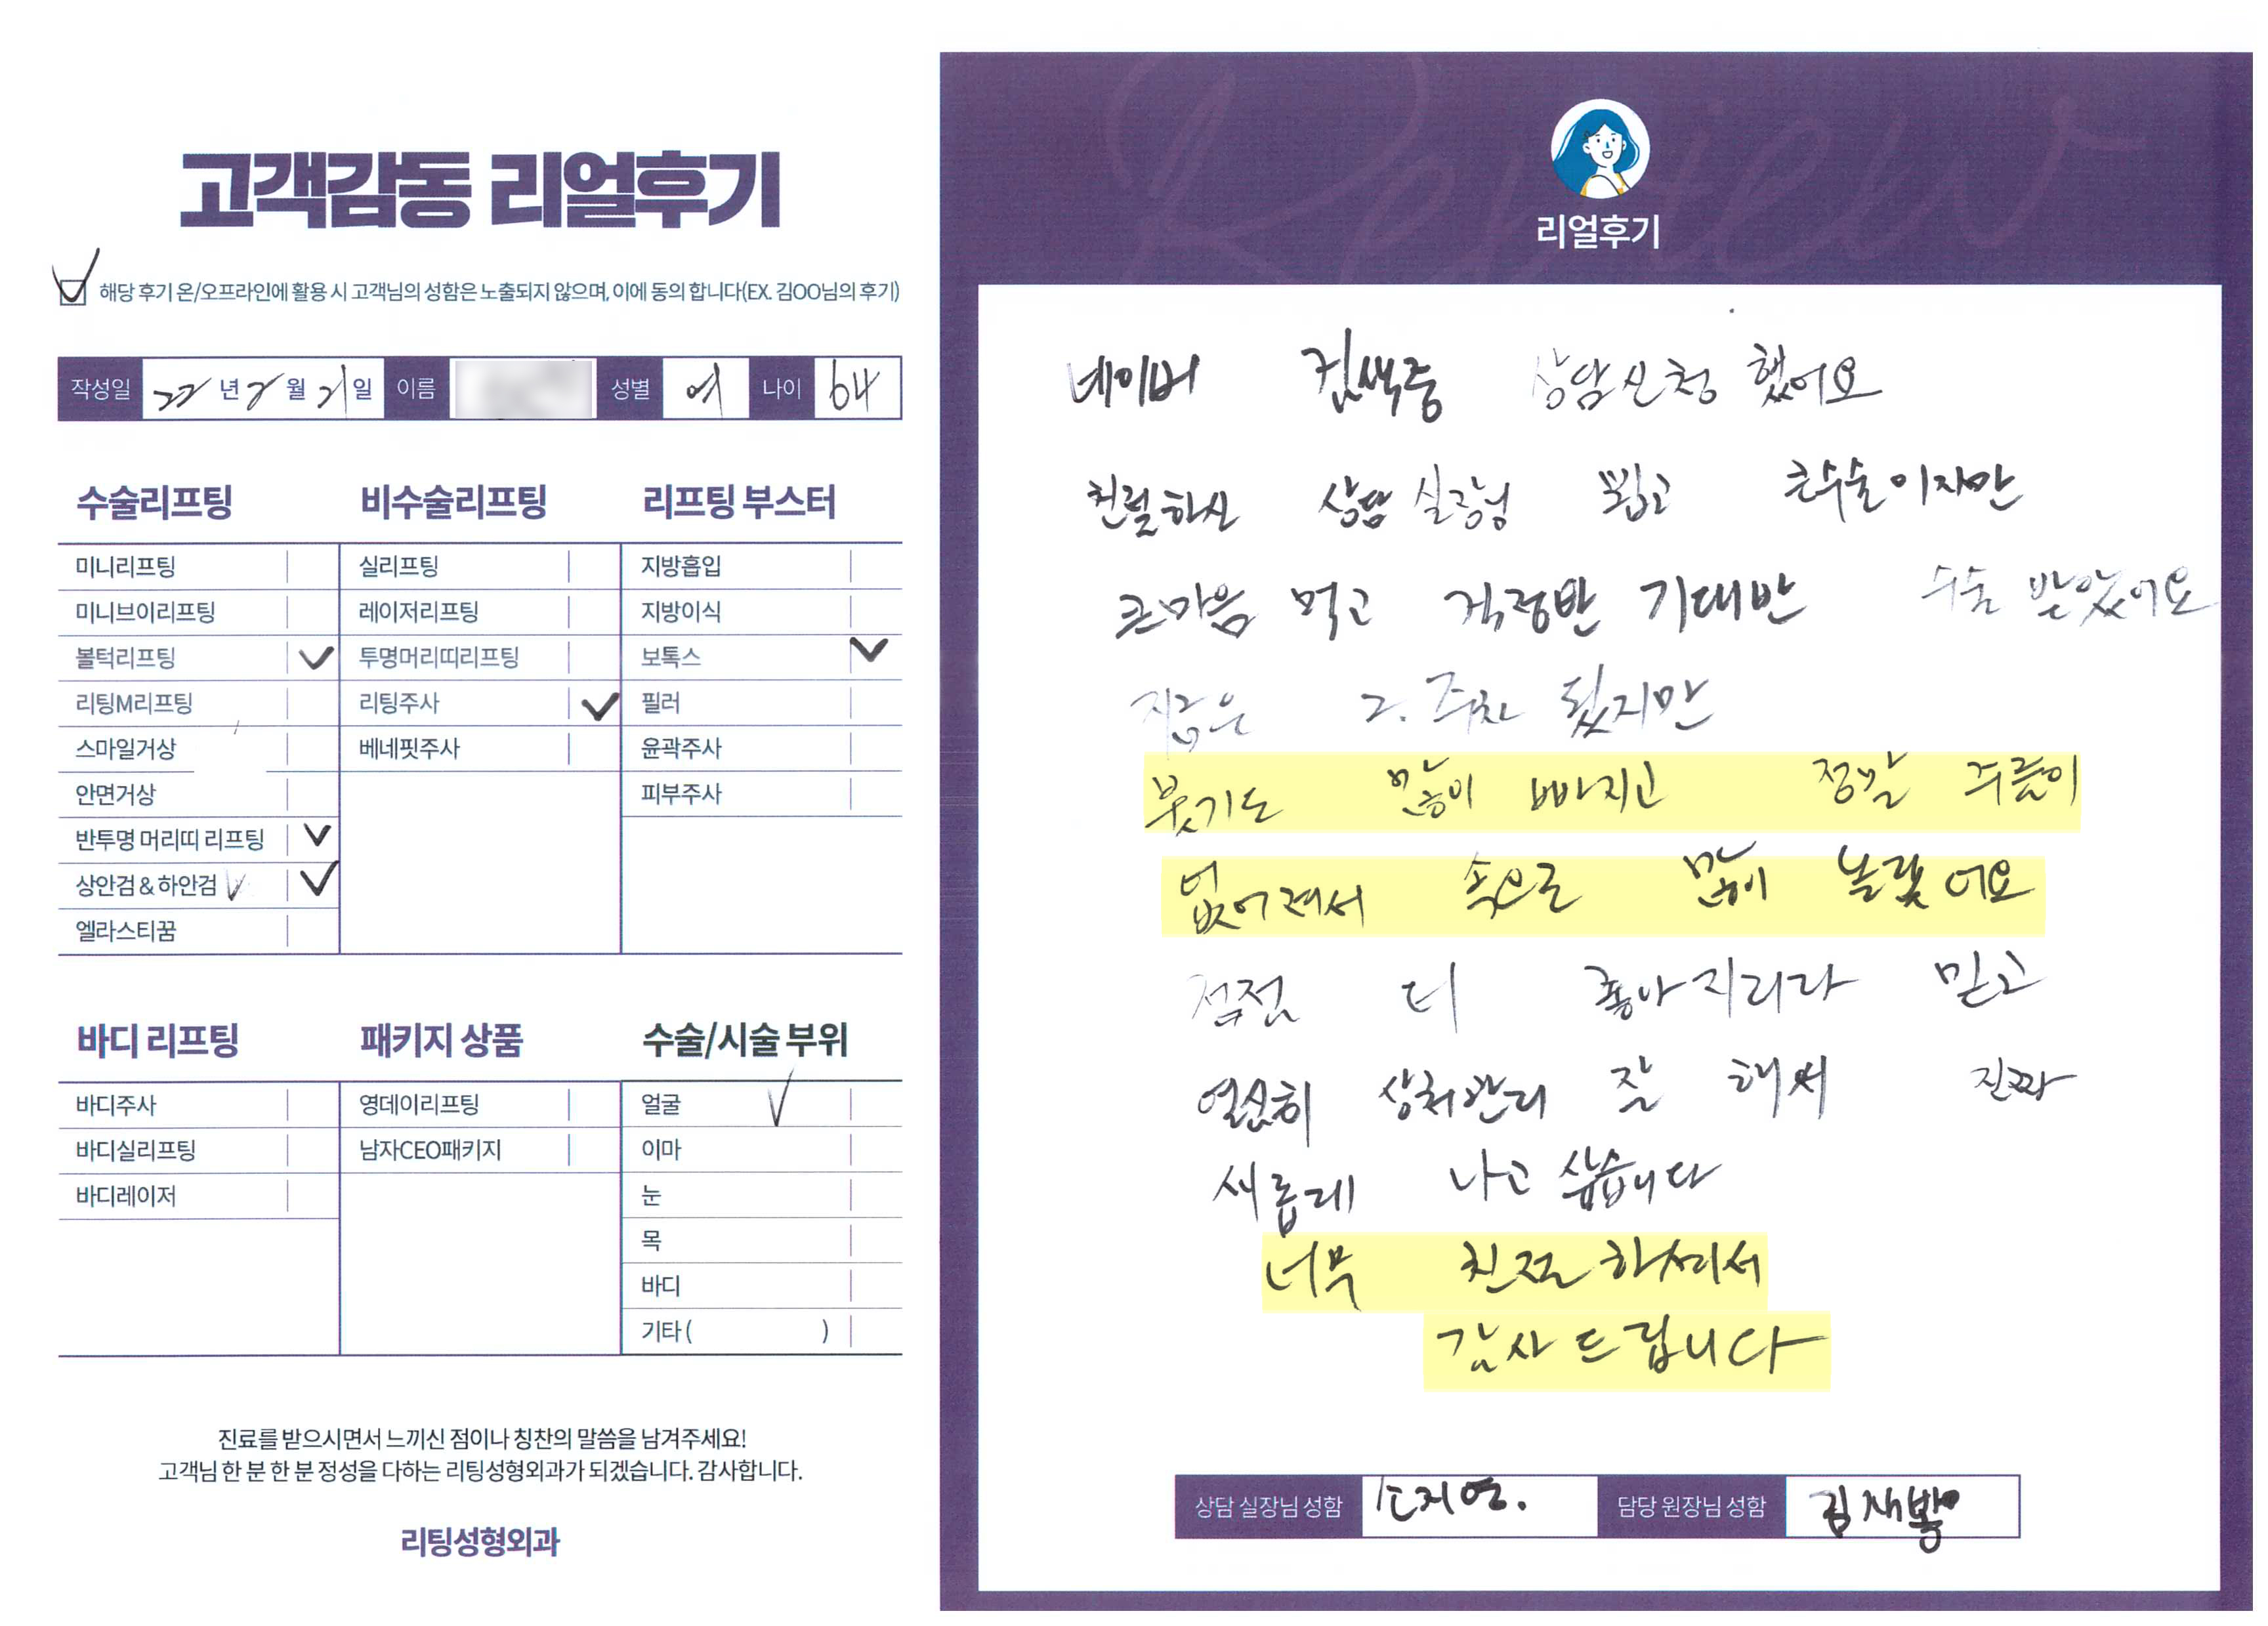 고객감동 리얼후기
해당 후기 온/오프라인에 활용 시 고객님의 성함은 노출되지 않으며, 이에 동의 합니다(EX. 김OO님의 후기)
작성일 22년 2월 21일 이름 성별 여 나이 64
수술리프팅
미니리프팅
미니브이리프팅
볼턱리프팅
리팅M리프팅
스마일거상
안면거상
반투명 머리띠 리프팅
상안검 & 하안검
엘라스티꿈
비수술리프팅
실리프팅
레이저리프팅
투명머리띠리프팅
리팅주사
베네핏주사
리프팅 부스터
지방흡입
지방이식
보톡스
필러
윤곽주사
피부주사
바디 리프팅
바디주사
바디실리프팅
바디레이저
패키지 상품
영데이리프팅
남자CEO패키지
수술/시술 부위
얼굴
이마
눈
목
바디
기타 ( )
진료를 받으시면서 느끼신 점이나 칭찬의 말씀을 남겨주세요!
고객님 한 분 한 분 정성을 다하는 리팅성형외과가 되겠습니다. 감사합니다.
리팅성형외과
Review
리얼후기
네이버 검색중 상담신청 했어요
친절하신 상담 실장님 뵙고 큰수술이지만
큰마음 먹고 걱정반 기대반 수술 받았어요
지금은 2.주차 됬지만
붓기도 많이 빠지고 정말 주름이
없어져서 속으로 많이 놀랬어요
점점 더 좋아지리라 믿고
열심히 상처관리 잘 해서 진짜
새롭게 나고 싶습니다
너무 친절하셔서
감사드립니다
상담 실장님 성함
담당 원장님 성함